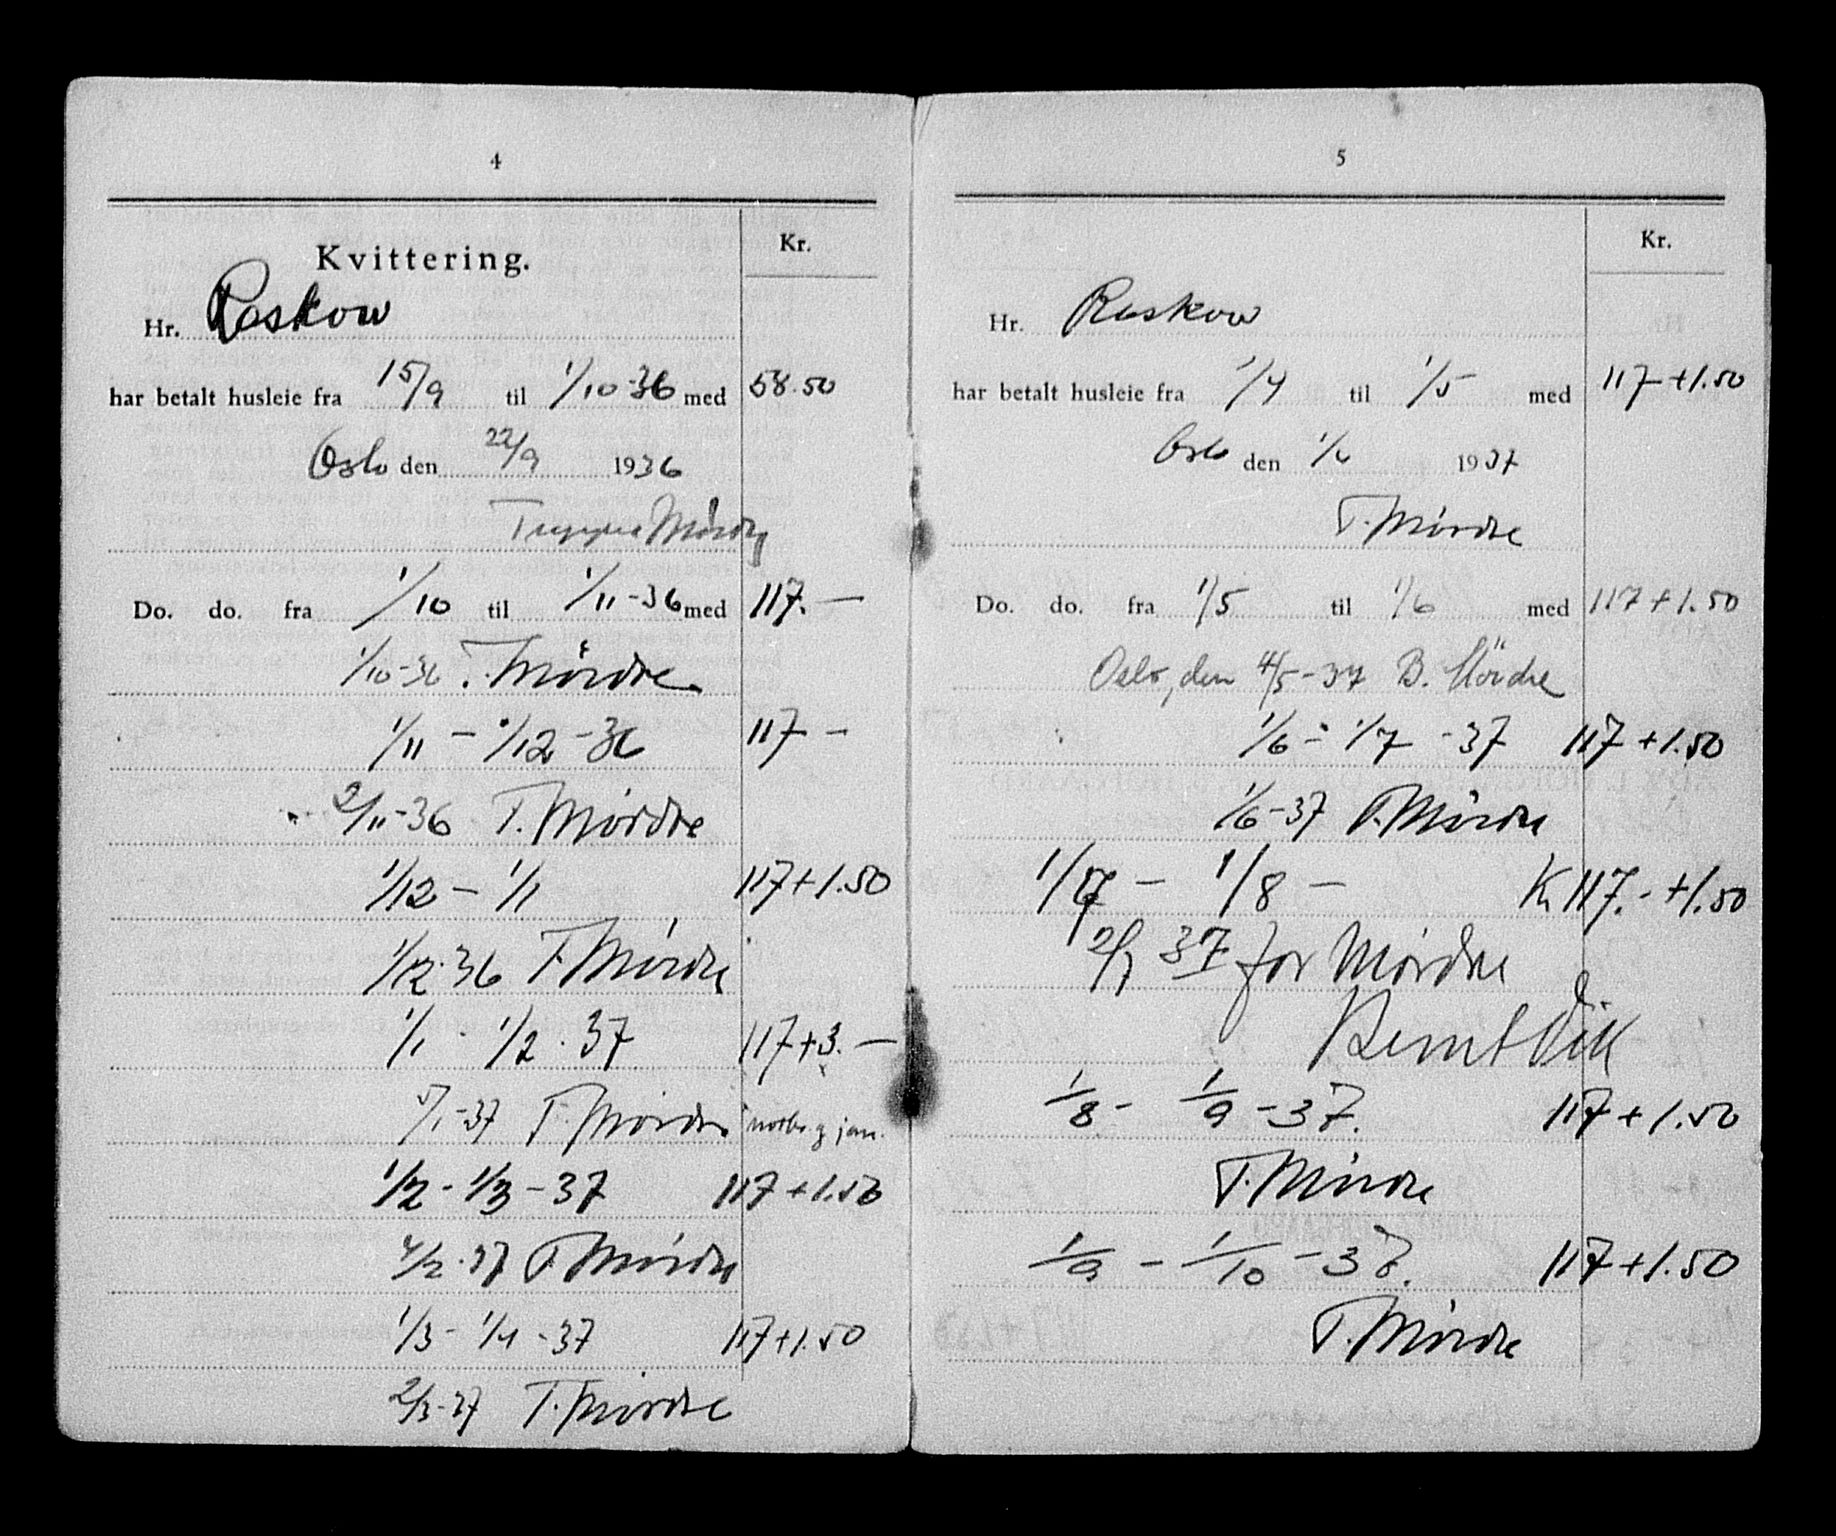 4
Kr.
Kvittering.
Hr. Raskow
har betalt husleie fra 15/9 til 1/10-36 med 58.50
Oslo den 22/9 1936
Mørdre
Do. do. fra 1/10 til 1/11-36 med 117.—
1/10-36 T. Mørdre
1/11 — 1/12 -36 117 -
2/11-36 T. Mørdre
1/12 — 1/1 117+1.50
1/12.36 T. Mørdre
1/1 . 1/2 . 37 117+3.—
5/1-37 T. Mørdre jan.
1/2 - 1/3 - 37 117+1.50
4/2.37 T. Mørdre
1/3 - 1/4 -37 117+1.50
2/3-37 T. Mørdre
5
Kr.
Hr. Raskow
har betalt husleie fra 1/4 til 1/5 med 117+1.50
Oslo den 1937
T. Mørdre
Do. do. fra 1/5 til 1/6 med 117+1.50
Oslo, den 4/5-37 B. Mördre
1/6 - 1/7 - 37 117+1.50
1/6-37 T. Mørdre
1/7 — 1/8 — Kr 117.- +1.50
2/7 37 for Mørdre
Bernt
1/8 - 1/9 - 37. 117+1.50
T. Mørdre
1/9 - 1/10 - 37. 117+1.50
T. Mørdre